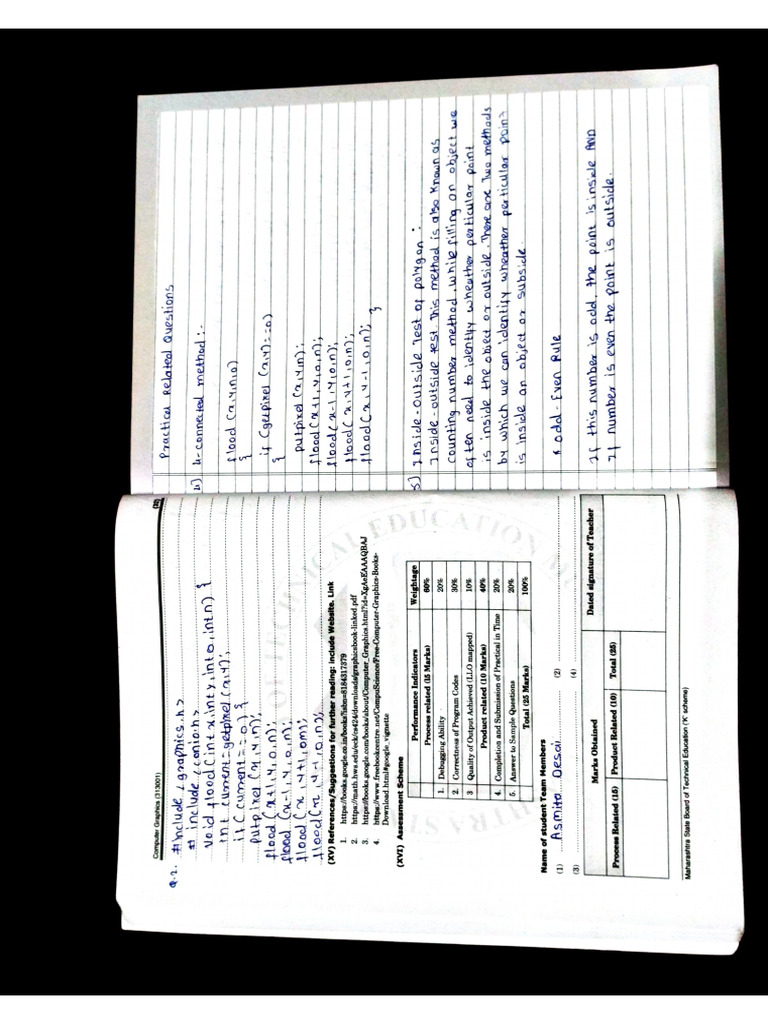 Computer Graphics (313001)
Q.2. #include <graphics.h>
# include <conio.h>
void flood(int x,int y,int o,int n) {
int current=getpixel(x,y);
if(current==o){
putpixel(x,y,n);
flood(x+1,y,o,n);
flood(x-1,y,o,n);
flood(x,y+1,o,n);
flood(x,y-1,o,n);
(XV) References/Suggestions for further reading: include Website. Link
1. https://books.google.co.in/books?isbn=8184317379
2. https://math.hws.edu/eck/cs424/downloads/graphicsbook-linked.pdf
3. https://books.google.com/books/about/Computer_Graphics.html?id=XgAeEAAAQBAJ
4. https://www.freebookcentre.net/CompuScience/Free-Computer-Graphics-Books-
Download.html#google_vignette
(XVI) Assessment Scheme
Performance Indicators Weightage
Process related (15 Marks) 60%
1. Debugging Ability 20%
2. Correctness of Program Codes 30%
3 Quality of Output Achieved (LLO mapped) 10%
Product related (10 Marks) 40%
4. Completion and Submission of Practical in Time 20%
5. Answer to Sample Questions 20%
Total (25 Marks) 100%
Name of student Team Members
(1) Asmita Desai (2)
(3) (4)
Marks Obtained Dated signature of Teacher
Process Related (15) Product Related (10) Total (25)
Maharashtra State Board of Technical Education ('K' scheme)
Practical Related Questions
4) 4-connected method :-
flood (x,y,n,o)
{
if (getpixel (x,y)==o)
{
putpixel (x,y,n);
flood(x+1,y,o,n);
flood(x-1,y,o,n);
flood(x,y+1,o,n);
flood(x,y-1,o,n);
}
5) Inside-outside Test of polygon :
Inside-outside test This method is also known as
counting number method. while filling an object we
often need to identify wheather perticular point
is inside the object or outside. There are Two methods
by which we can identify wheather perticular point
is inside an object or subside
* odd-Even Rule
If this number is odd, the point is inside AND
If number is even the point is outside.